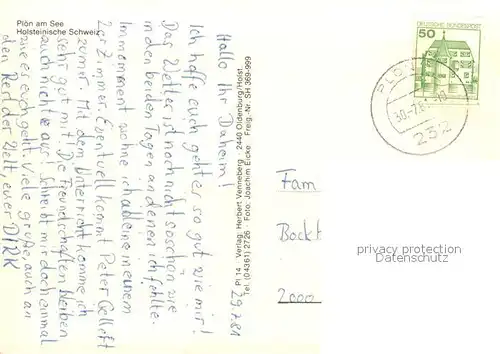 Plön am See
Holsteinische Schweiz
29.7.81
Hallo Ihr Daheim!
Ich hoffe euch geht er so gut wie mir!
Das Wetter ist noch nicht so schön wie
in den beiden Tagen an denen ich fehlte.
Im moment wohne ich alleine in einem
2er Zimmer. Eventuell kommt Peter
zu mir. Mit dem Unterricht komme ich
sehr gut mit! Die Freundschaften bleiben
auch nicht aus! Schreibt mir doch einmal
wie es euch geht. Viele grüße, auch an
den Rest der Welt, euer DIRK
Pl 14 Verlag Herbert Venneberg 2440 Oldenburg/Holst.
Tel. (04361) 2726 Foto: Joachim Eicke Freig.-Nr. SH 369-999
50
DEUTSCHE BUNDESPOST
232
Fam
Bockt
2000
privacy protection
Datenschutz